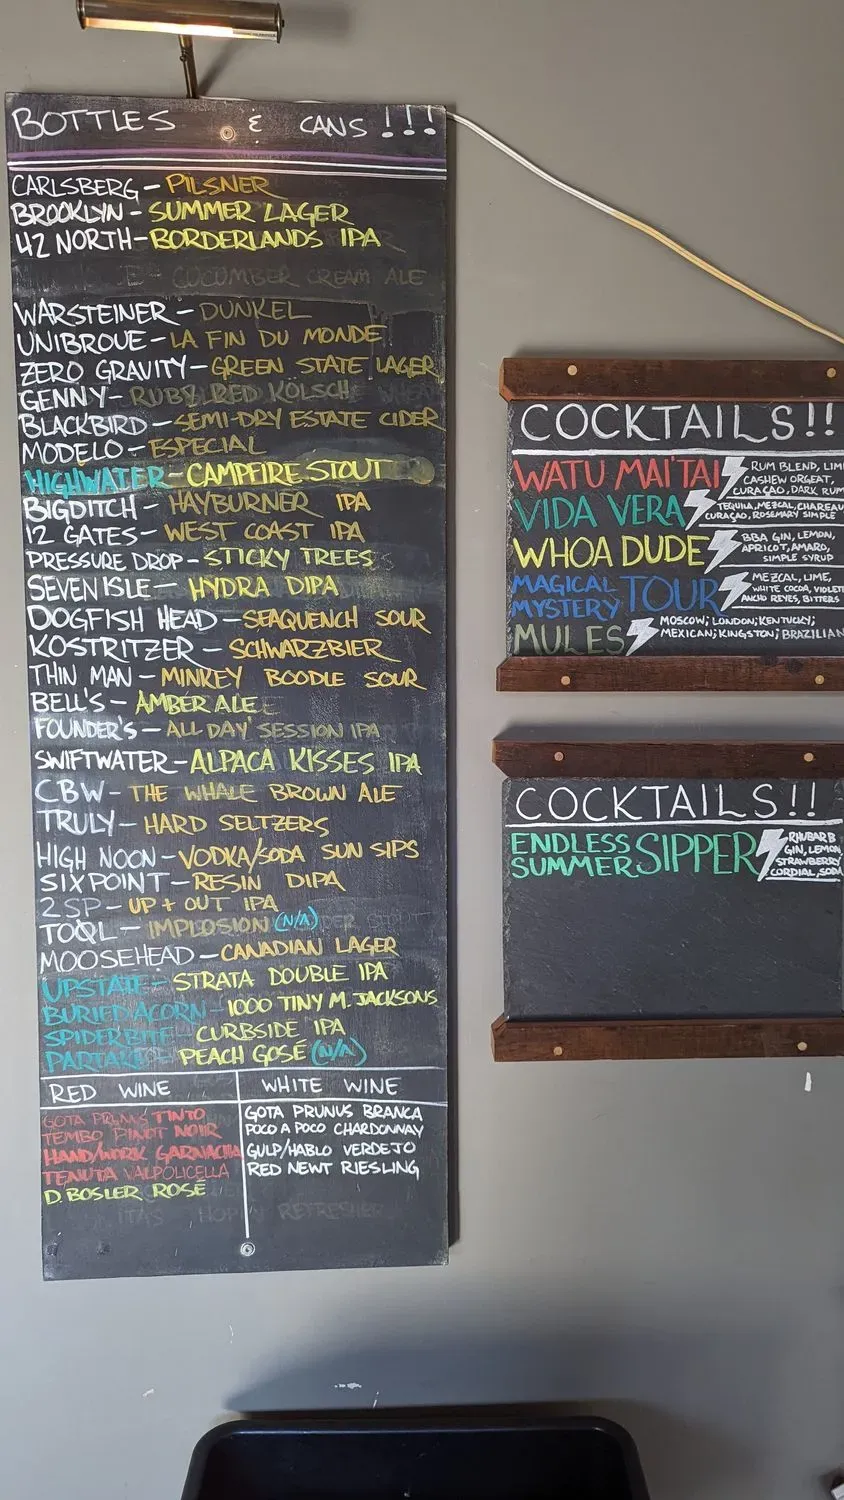 BOTTLES & CANS!!!
CARLSBERG - PILSNER
BROOKLYN - SUMMER LAGER
42 NORTH - BORDERLANDS IPA
COCUMBER CREAM ALE
WARSTEINER - DUNKEL
UNIBROUE - LA FIN DU MONDE
ZERO GRAVITY - GREEN STATE LAGER
GENNY - RUBY RED KÖLSCH
BLACKBIRD - SEMI-DRY ESTATE CIDER
MODELO - ESPECIAL
HIGHWATER - CAMPFIRE STOUT
BIGDITCH - HAYBURNER IPA
12 GATES - WEST COAST IPA
PRESSURE DROP - STICKY TREES
SEVEN ISLE - HYDRA DIPA
DOGFISH HEAD - SEAQUENCH SOUR
KOSTRITZER - SCHWARZBIER
THIN MAN - MINKEY BOODLE SOUR
BELL'S - AMBER ALE
FOUNDER'S - ALL DAY SESSION IPA
SWIFTWATER - ALPACA KISSES IPA
CBW - THE WHALE BROWN ALE
TRULY - HARD SELTZERS
HIGH NOON - VODKA/SODA SUN SIPS
SIXPOINT - RESIN DIPA
2SP - UP + OUT IPA
TOØL - IMPLOSION (N/A)
MOOSEHEAD - CANADIAN LAGER
UPSTATE - STRATA DOUBLE IPA
BURIED ACORN - 1000 TINY M. JACKSONS
SPIDERBITE - CURBSIDE IPA
PARTAKE - PEACH GOSÉ (N/A)
RED WINE
GOTA PRUNUS TINTO
TEMBO PINOT NOIR
HAND/WORK GARNACHA
TENUTA VALPOLICELLA
D. BOSLER ROSÉ
WHITE WINE
GOTA PRUNUS BRANCA
POCO A POCO CHARDONNAY
GULP/HABLO VERDEJO
RED NEWT RIESLING
COCKTAILS!!
WATU MAI'TAI RUM BLEND, LIME
CASHEW ORGEAT,
CURAÇAO, DARK RUM
VIDA VERA TEQUILA, MEZCAL, CHAREAU
CURAÇAO, ROSEMARY SIMPLE
WHOA DUDE BBA GIN, LEMON,
APRICOT, AMARO,
SIMPLE SYRUP
MAGICAL MYSTERY TOUR MEZCAL, LIME,
WHITE COCOA, VIOLET
ANCHO REYES, BITTERS
MULES MOSCOW; LONDON; KENTUCKY;
MEXICAN; KINGSTON; BRAZILIAN
COCKTAILS!!
ENDLESS SUMMER SIPPER RHUBARB
GIN, LEMON
STRAWBERRY
CORDIAL, SODA